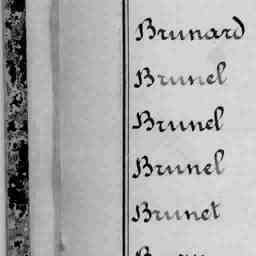 Brunard
Brunel
Brunel
Brunel
Brunet